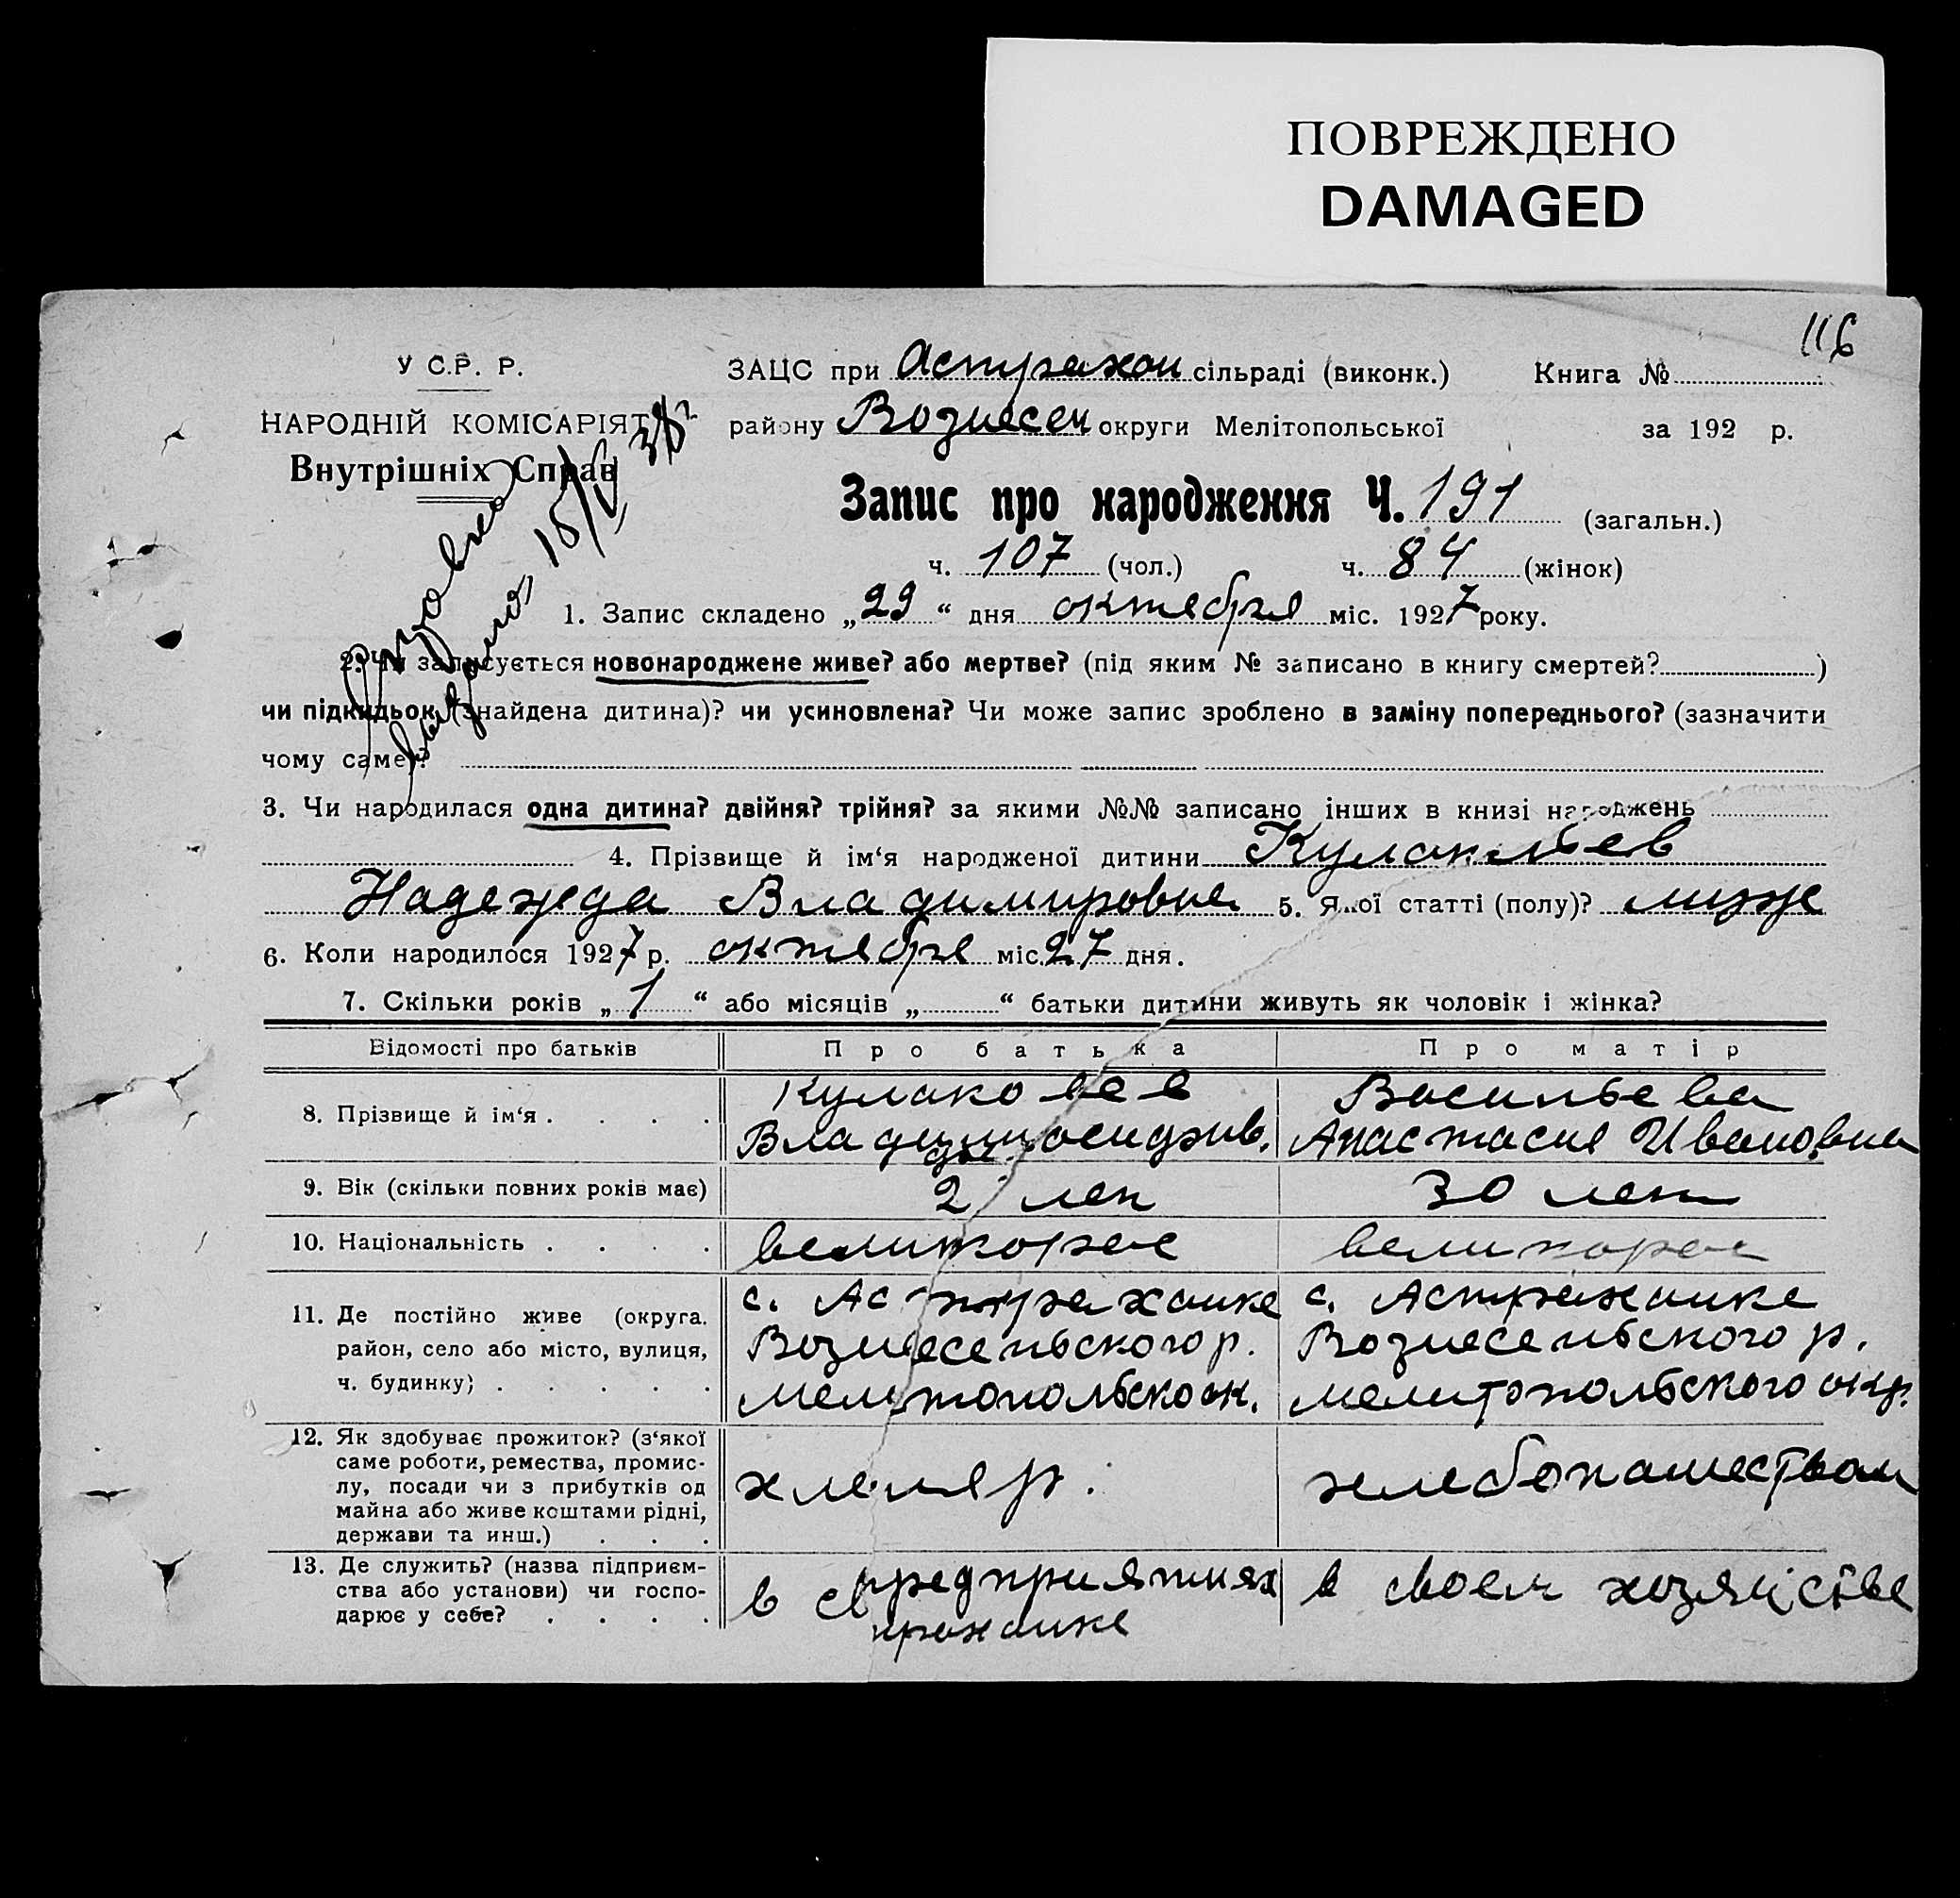 ПОВРЕЖДЕНО
DAMAGED
116
У С.Р. Р.
НАРОДНІЙ КОМІСАРІЯТ
Внутрішніх Справ
ЗАЦС при Астрахан сільраді (виконк.) Книга №
району Вознесен округи Мелітопольської за 192 р.
Запис про народження Ч. 191 (загальн.)
ч. 107 (чол.) ч. 84 (жінок)
1. Запис складено „29“ дня октября міс. 1927 року.
2. Чи записується новонароджене живе? або мертве? (під яким № записано в книгу смертей? )
чи підкидьок (знайдена дитина)? чи усиновлена? Чи може запис зроблено в заміну попереднього? (зазначити
чому саме)?
3. Чи народилася одна дитина? двійня? трійня? за якими №№ записано інших в книзі народжень
4. Прізвище й ім‘я народженої дитини
Надежда Владимировна 5. Якої статті (полу)?
6. Коли народилося 1927 р. октября міс. 27 дня.
7. Скільки років „1“ або місяців „ “ батьки дитини живуть як чоловік і жінка?
Відомості про батьків Про батька Про матір
8. Прізвище й ім‘я . . . . Васильева
Анастасия Ивановна
9. Вік (скільки повних років має) 2 лет 30 лет
10. Національність . . . . великорос великорос
11. Де постійно живе (округа, район, село або місто, вулиця, ч. будинку) . . . . .
с. Астраханке с. Астраханке
Вознесенського р. Вознесенського р.
Мелитопольско ок. мелитопольского окр.
12. Як здобуває прожиток? (з‘якої
саме роботи, ремества, промис-
лу, посади чи з прибутків од
майна або живе коштами рідні,
держави та инш.) . . .
хлебопашеством
13. Де служить? (назва підприєм-
ства або установи) чи госпо-
дарює у себе? . . . .
в предприятиях
в своем хозяйстве